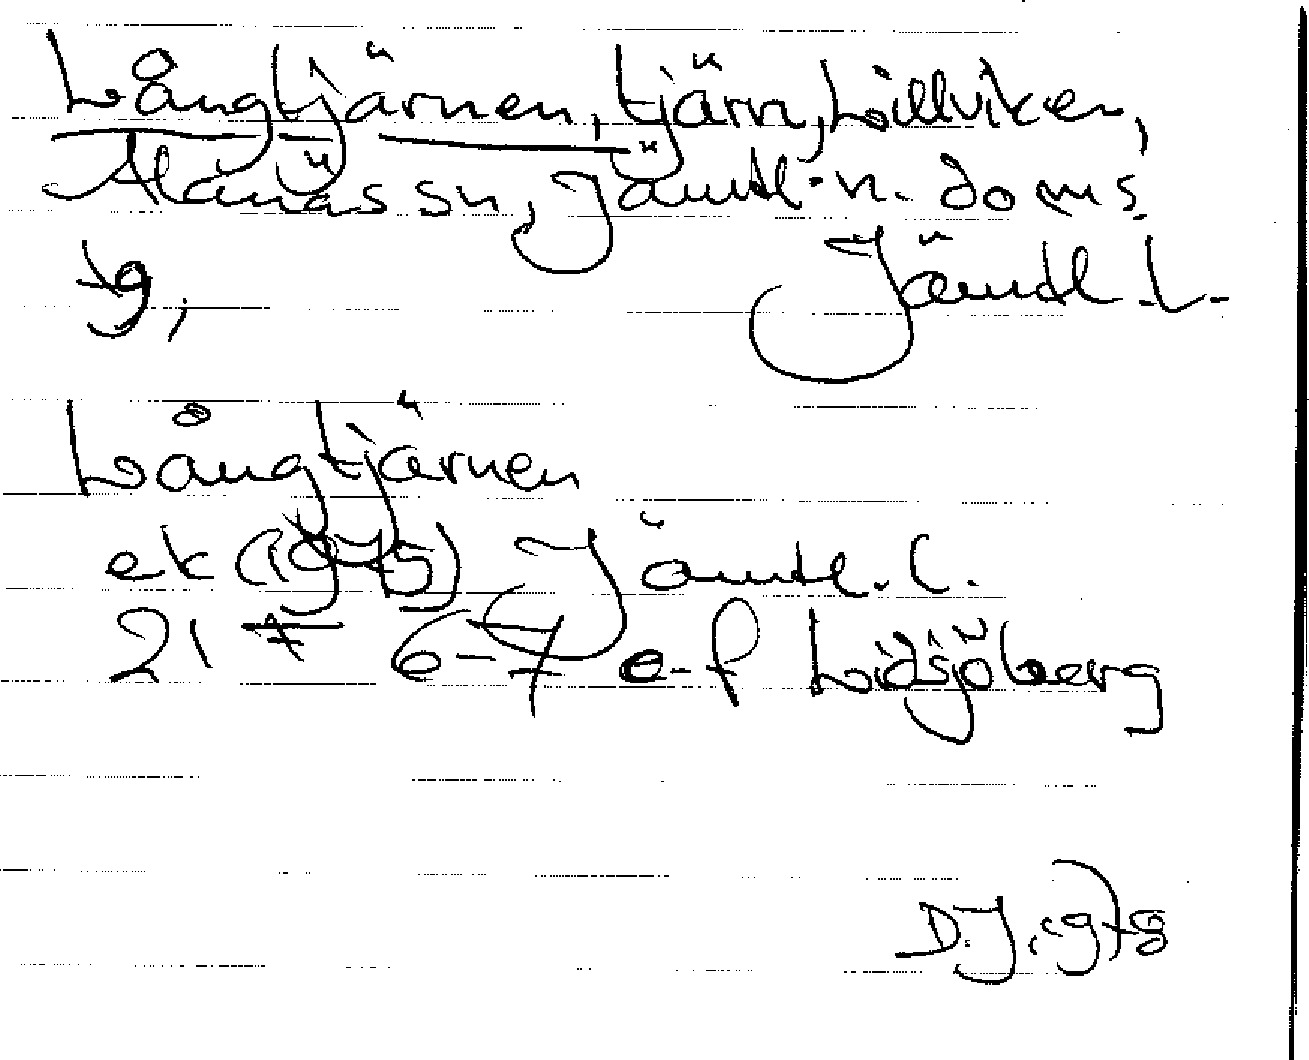 Långtjärnen, tjärn, Lillviken,
Alanäs sn, Jämtl. n. doms.
Jämtl. l.
Långtjärnen
ek (1975) Jämtl. l.
21 6-7 e-f Lidsjöberg
D.J. 1978